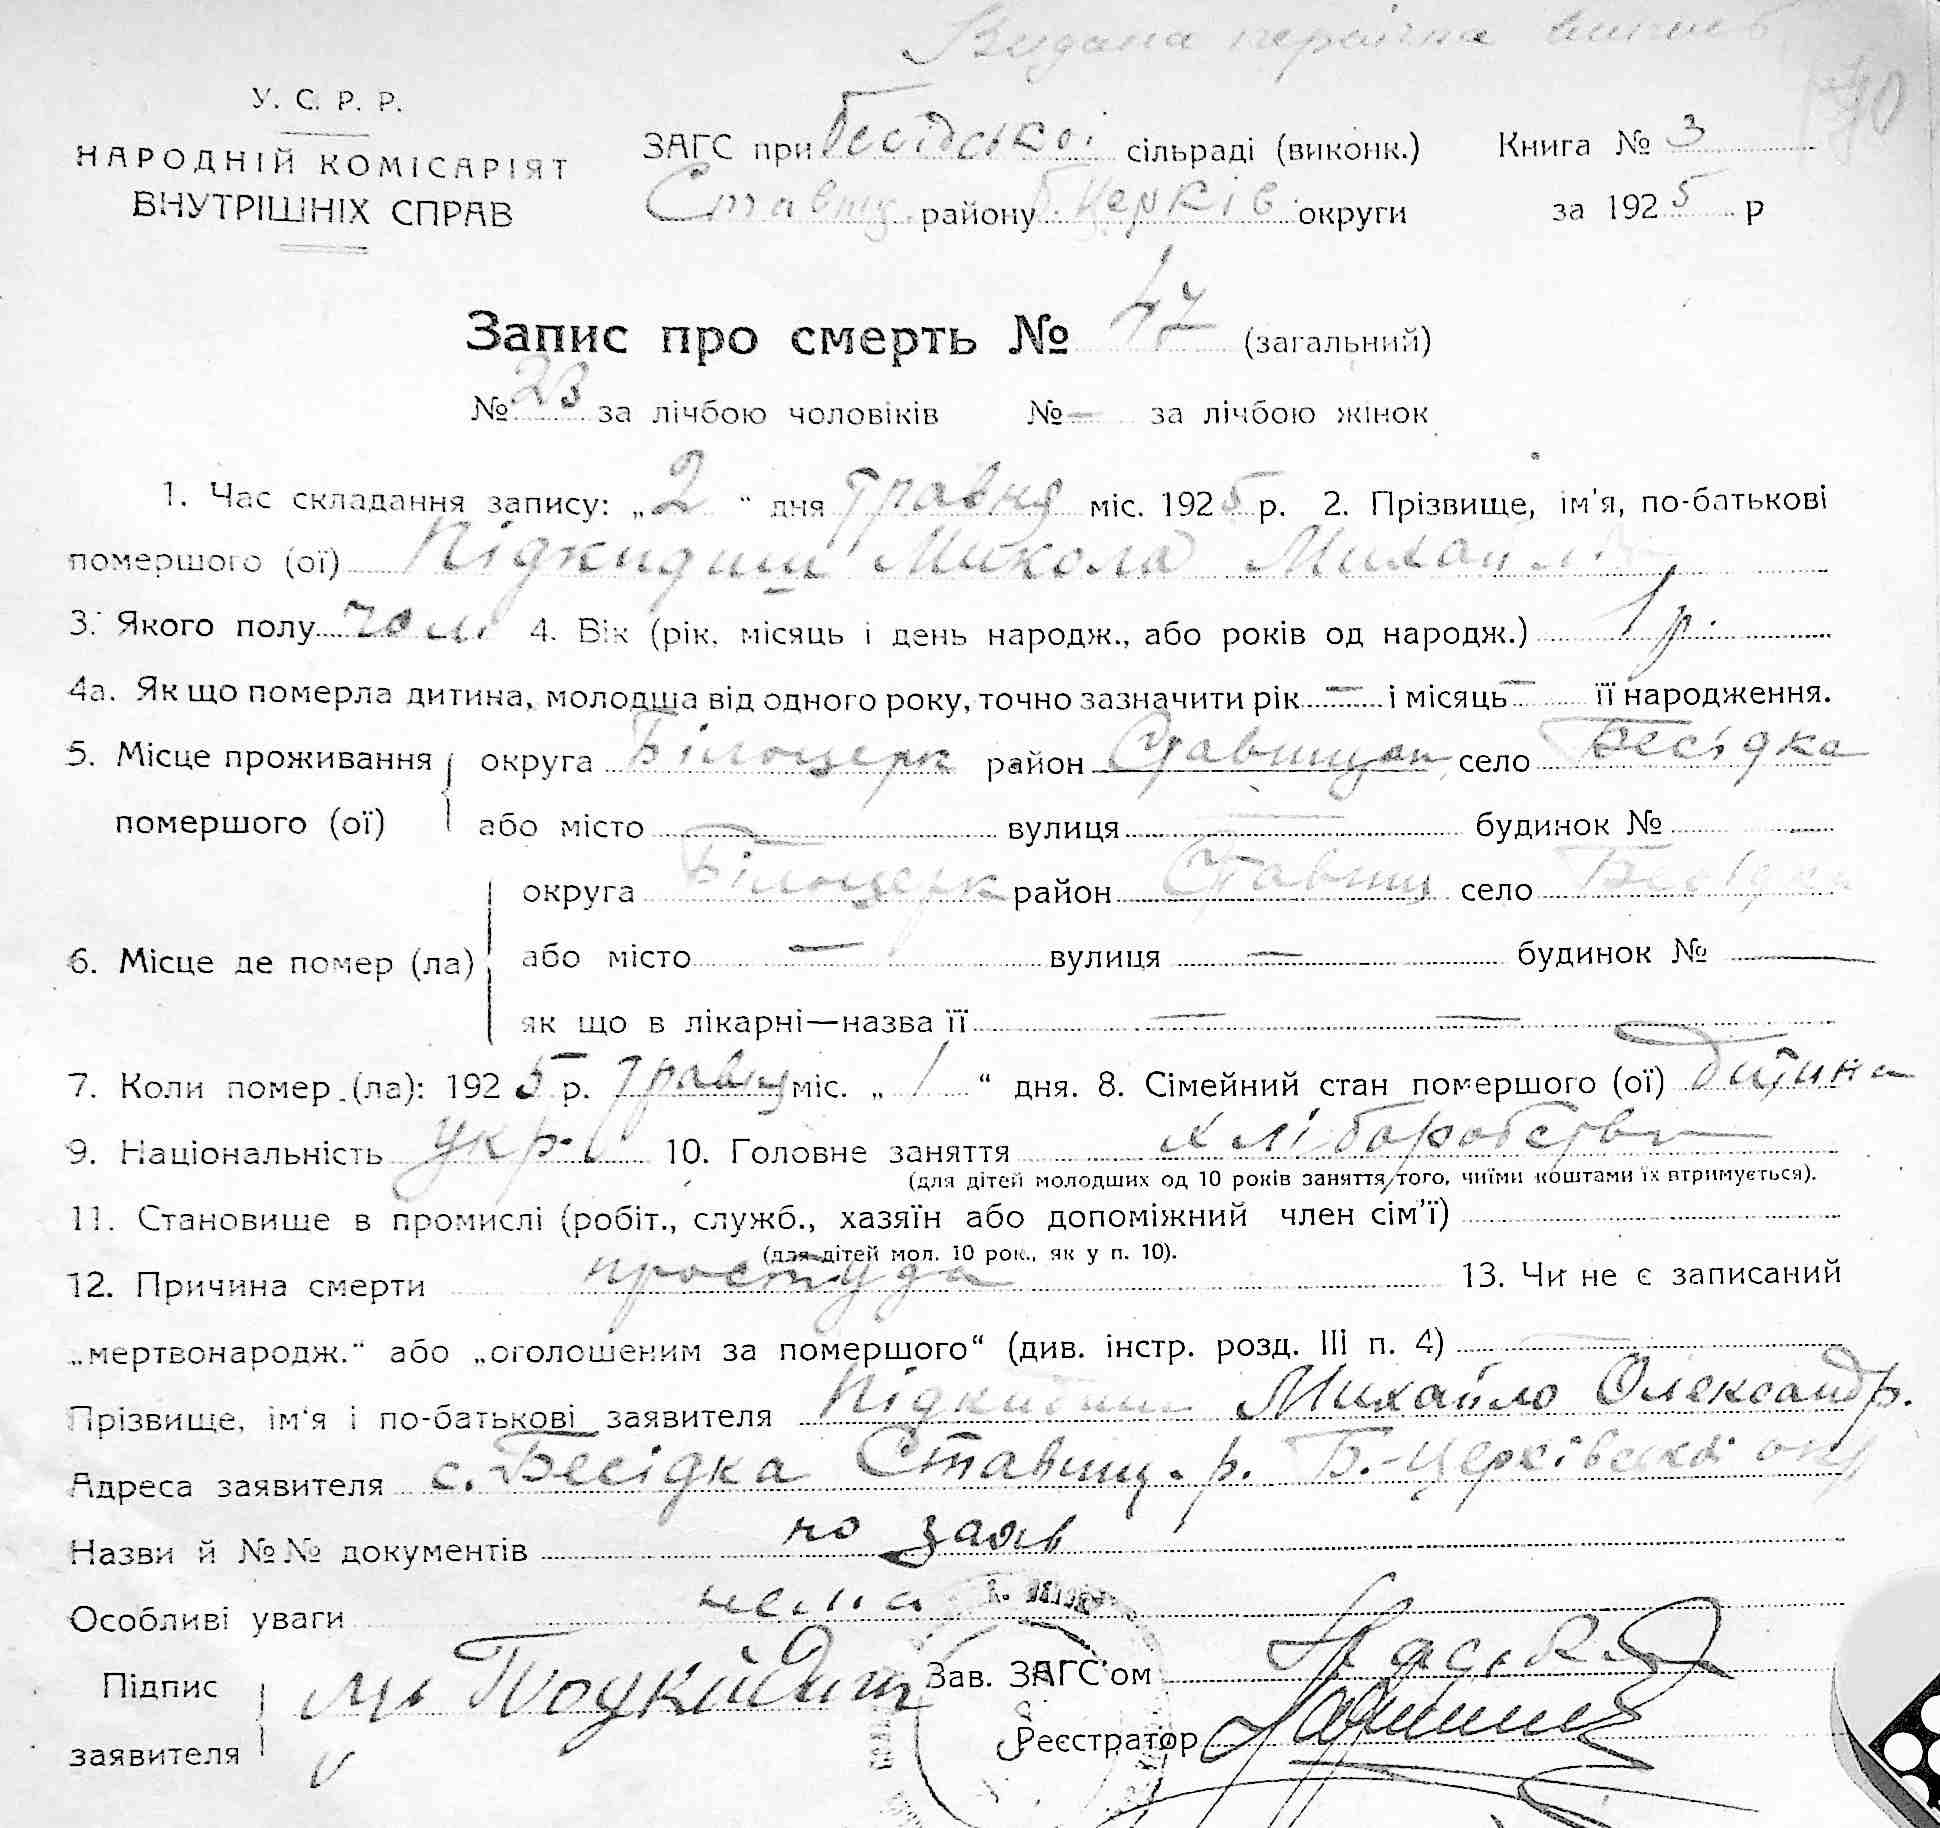 Видана
У. С. Р. Р.
НАРОДНІЙ КОМІСАРІЯТ
ВНУТРІШНІХ СПРАВ
ЗАГС при Бесідській сільраді (виконк.) Книга № 3
Ставищ. району Б. Церків. округи за 1925 р
Запис про смерть № 47 (загальний)
№ 23 за лічбою чоловіків № — за лічбою жінок
1. Час складання запису: „2“ дня травня міс. 1925 р. 2. Прізвище, ім'я, по-батькові
помершого (ої) Підкидиш Микола Михайл.
3. Якого полу чол. 4. Вік (рік, місяць і день народж., або років од народж.) 1 р.
4а. Як що померла дитина, молодша від одного року, точно зазначити рік — і місяць — її народження.
5. Місце проживання округа Білоцерк район Ставищан село Бесідка
помершого (ої) або місто вулиця будинок №
округа Білоцерк район Ставищ село Бесідка
6. Місце де помер (ла) або місто — вулиця — будинок № —
як що в лікарні—назва її — —
7. Коли помер (ла): 1925 р. травня міс. „1“ дня. 8. Сімейний стан помершого (ої) дитина
9. Національність укр. 10. Головне заняття хліборобство
(для дітей молодших од 10 років заняття того, чиїми коштами їх втримується).
11. Становище в промислі (робіт., служб., хазяїн або допоміжний член сім'ї)
(для дітей мол. 10 рок., як у п. 10).
12. Причина смерти простуда 13. Чи не є записаний
„мертвонародж.“ або „оголошеним за помершого“ (див. інстр. розд. III п. 4)
Прізвище, ім'я і по-батькові заявителя Підкидиш Михайло Олександр.
Адреса заявителя с. Бесідка Ставищ. р. Б.-Церківської окр
Назви й №№ документів по заяв
Особливі уваги нема
Підпис Зав. ЗАГС'ом
заявителя Реєстратор